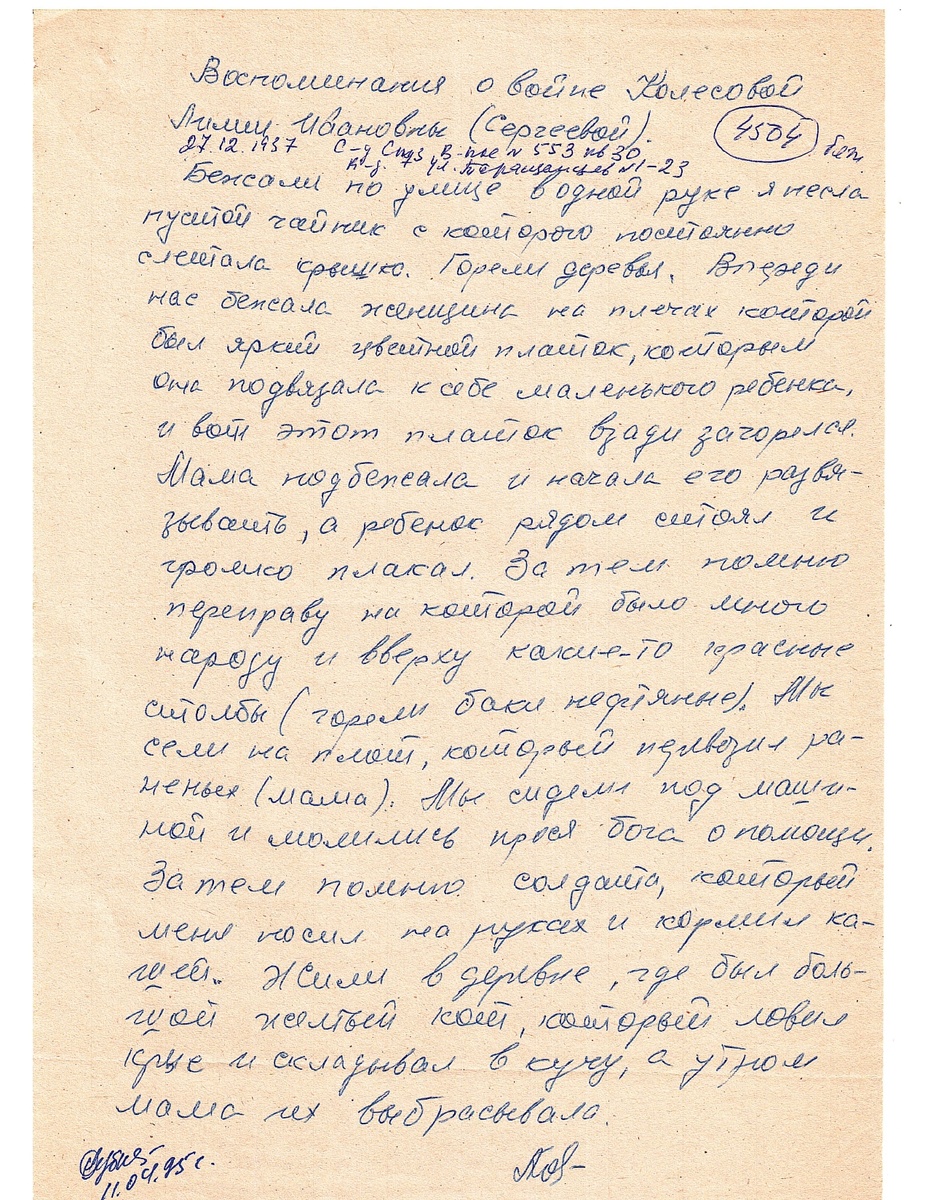 Воспоминания о войне Колесовой
Лилии Ивановны (Сергеевой).
4504
27.12.1937 С-д В-ние № 553 кв 30
ул. №1-23
Бежали по улице в одной руке я несла
пустой чайник с которого постоянно
слетала крышка. Горели деревья. Впереди
нас бежала женщина на плечах которой
был яркий цветной платок, которым
она подвязала к себе маленького ребенка,
и вот этот платок взади загорелся.
Мама подбежала и начала его развя-
зывать, а ребенок рядом стоял и
громко плакал. Затем помню
переправу на которой было много
народу и вверху какие-то красные
столбы (горели баки нефтяные). Мы
сели на плот, который перевозил ра-
неных (мама). Мы сидели под маши-
ной и молились прося бога о помощи.
Затем помню солдата, который
меня носил на руках и кормил ка-
шей. Жили в деревне, где был боль-
шой желтый кот, который ловил
крыс и складывал в кучу, а утром
мама их выбрасывала.
11.04.95 г.